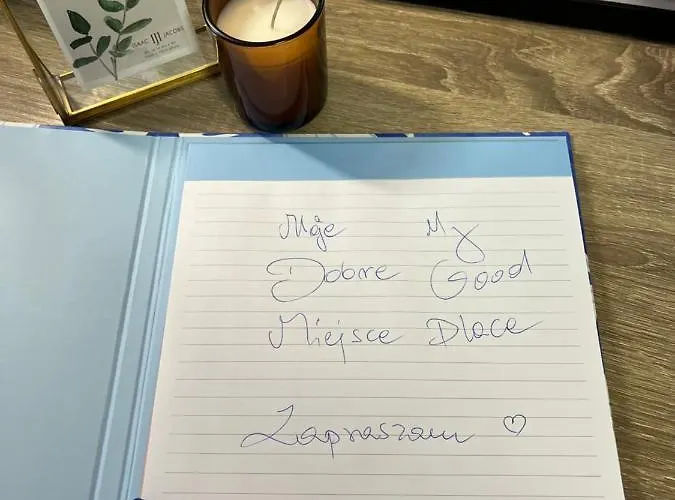 ISAAC JACOBS
Moje My
Dobre Good
Miejsce Place
Zapraszam ♡